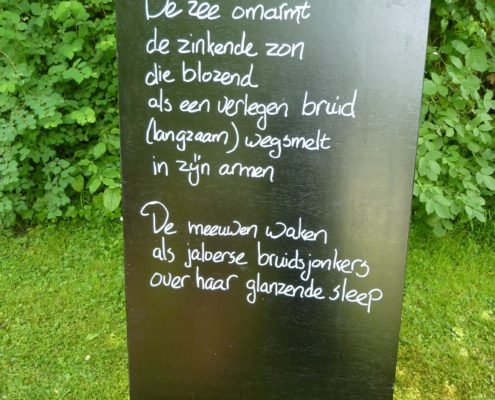 De zee omarmt
de zinkende zon
die blozend
als een verlegen bruid
(langzaam) wegsmelt
in zijn armen
De meeuwen waken
als jaloerse bruidsjonkers
over haar glanzende sleep